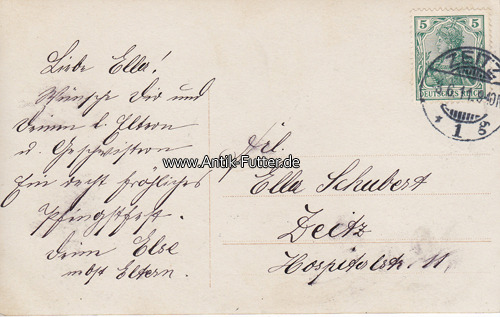 Liebe Ella!
Wünsche Dir und
Deinen l. Eltern
u. Geschwistern
Ein recht fröhliches
Pfingstfest.
Deine Else
nebst Eltern.
Frl.
Ella Schubert
Zeitz
Hospitalstr. 11.
5 5
DEUTSCHES REICH
ZEITZ
1 g
www.Antik-Futter.de